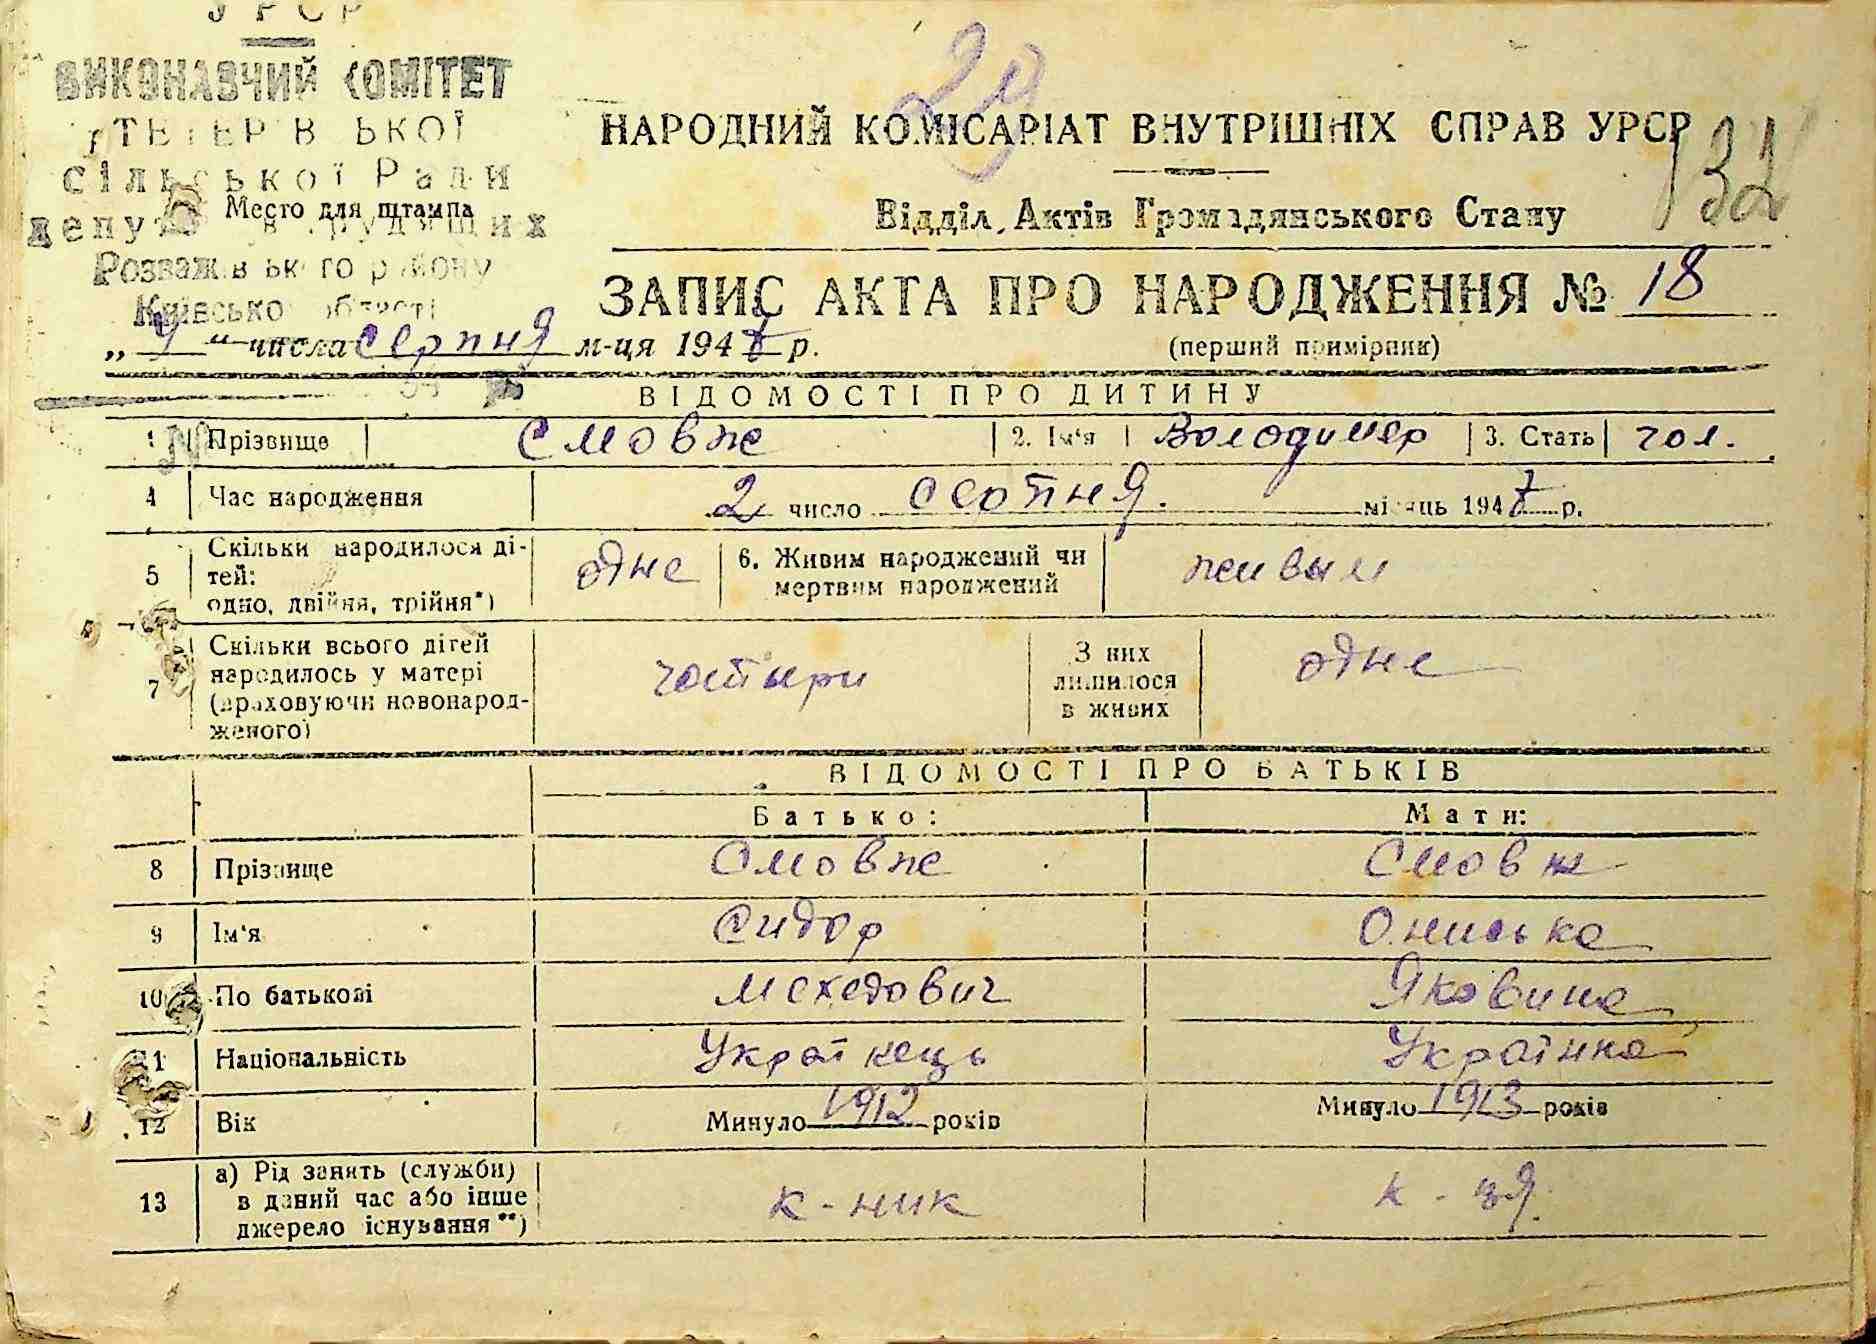 УРСР
ВИКОНАВЧИЙ КОМІТЕТ
сільської Ради
Место для штампа
НАРОДНИЙ КОМІСАРІАТ ВНУТРІШНІХ СПРАВ УРСР
29
132
Відділ Актів Громадянського Стану
ЗАПИС АКТА ПРО НАРОДЖЕННЯ № 18
„ 9 “ числа серпня м-ця 1947 р.
(перший примірник)
ВІДОМОСТІ ПРО ДИТИНУ
1 Прізвище Смовж 2. Ім'я Володимер 3. Стать чол.
4 Час народження 2 число серпня. місяць 1947 р.
5 Скільки народилося ді-
тей:
одно, двійня, трійня*) одне 6. Живим народжений чи
мертвим народжений живым
7 Скільки всього дітей
народилось у матері
(враховуючи новонарод-
женого) чотыри З них
лишилося
в живих одне
ВІДОМОСТІ ПРО БАТЬКІВ
Батько: Мати:
8 Прізвище Смовж Смовж
9 Ім'я Сидор Ониська
10 По батькові Мехедович Яковина
11 Національність Українець Українка
12 Вік Минуло 1912 років Минуло 1913 років
13 а) Рід занять (служби)
в даний час або інше
джерело існування**) к-ник к-ця.